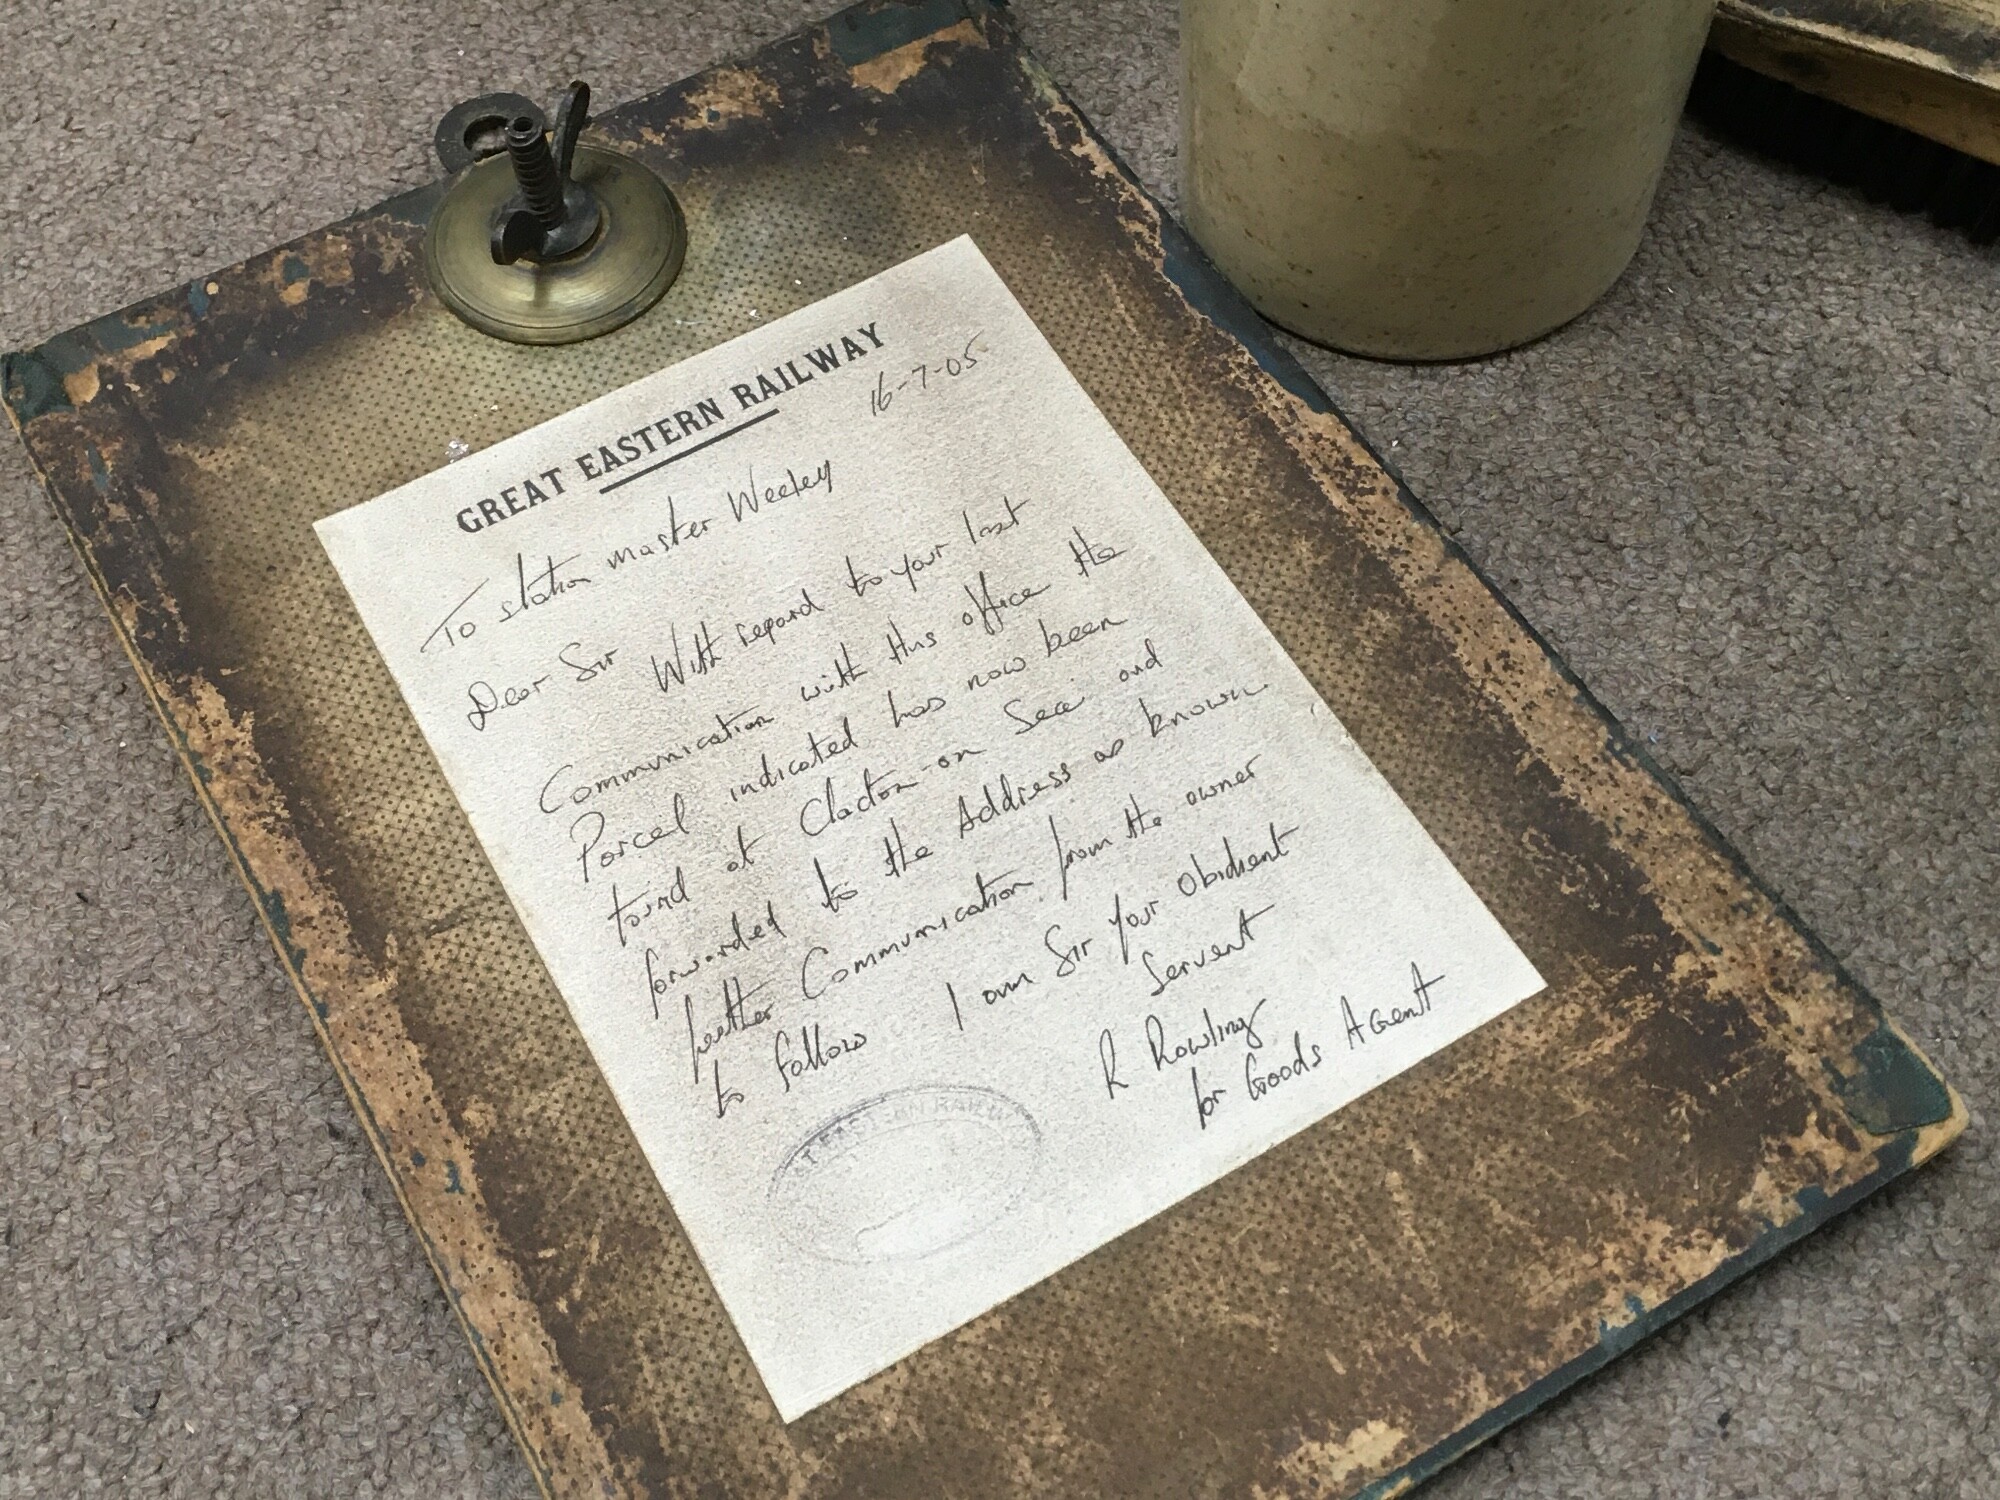 GREAT EASTERN RAILWAY
16-7-05
To station master Weeley
Dear Sir With regard to your last
Communication with this office the
Parcel indicated has now been
found at Clacton-on Sea and
forwarded to the Address as known.
further Communication from the owner
to follow I am Sir your Obidient
Servent
R Rowling
for Goods Agent
EASTERN RAILWAY